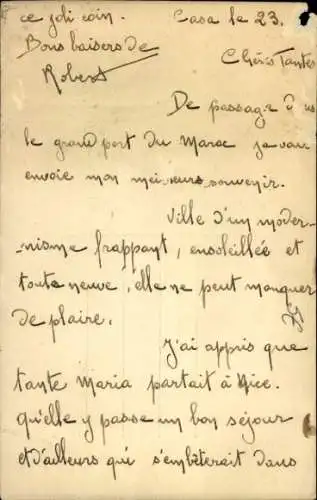 ce joli coin. Casa le 23.
Bons baisers de
Robert
Chères Tantes
De passage dans
le grand port du Maroc je vous
envoie mon meilleurs souvenir.
Ville d'un moder-
-nisme frappant, ensoleillée et
toute neuve, elle ne peut manquer
de plaire.
J'ai appris que
tante Maria partait à Nice.
qu'elle y passe un bon séjour
et d'ailleurs qui s'embêterait dans